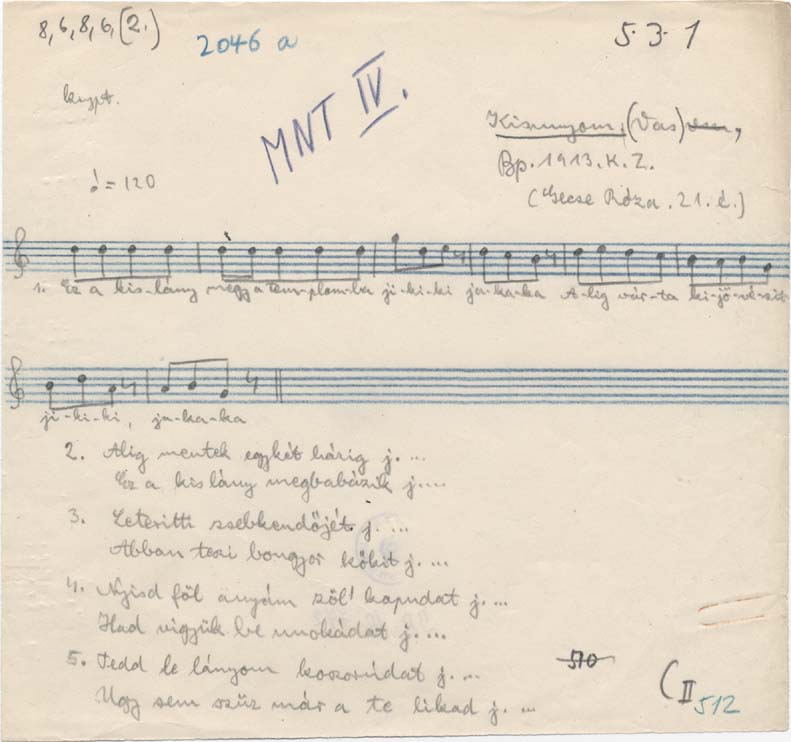 8,6,8,6,(2.)
2046 a
5·3·1
MNT IV.
Kisunyom, (Vas)
Bp. 1913. K. Z.
♩ = 120
(Gecse Róza. 21. é.)
1. Ez a kis-lány megy a tem-plom-ba ji-ki-ki ja-ka-ka A-lig vár-ta ki-jö-vé-sit
ji-ki-ki, ja-ka-ka
2. Alig mentek egykét házig j. ...
Ez a kislány megbabázik j....
3. Leteritti zsebkendőjét j. ...
Abban teszi bongyor kökit j. ...
4. Nyisd föl anyám zöl' kapudat j. ...
Had vigyük be unokádat j. ...
5. Tedd le lányom koszorúdat j. ...
Ugy sem szüz már a te likad j. ...
510
C II 512